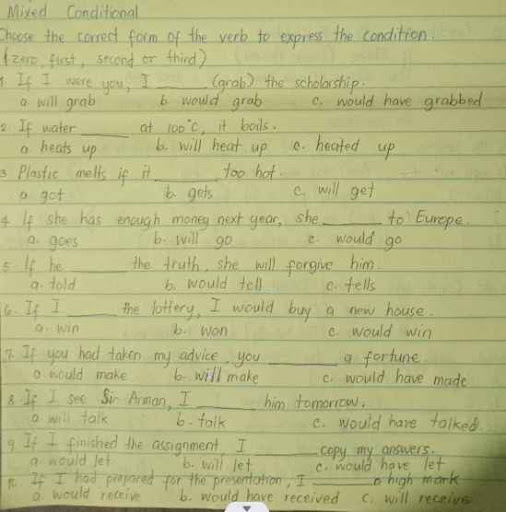 Mixed Conditional
Choose the correct form of the verb to express the condition.
(zero, first, second or third)
1. If I were you, I ______ (grab) the scholarship.
a. will grab b. would grab c. would have grabbed
2. If water ______ at 100°C, it boils.
a. heats up b. will heat up c. heated up
3. Plastic melts if it ______ too hot.
a. got b. gets c. will get
4. If she has enough money next year, she ______ to Europe.
a. goes b. will go c. would go
5. If he ______ the truth, she will forgive him.
a. told b. would tell c. tells
6. If I ______ the lottery, I would buy a new house.
a. win b. won c. would win
7. If you had taken my advice, you ______ a fortune.
a. would make b. will make c. would have made
8. If I see Sir Arman, I ______ him tomorrow.
a. will talk b. talk c. would have talked.
9. If I finished the assignment, I ______ copy my answers.
a. would let b. will let c. would have let
10. If I had prepared for the presentation, I ______ a high mark
a. would receive b. would have received c. will receive